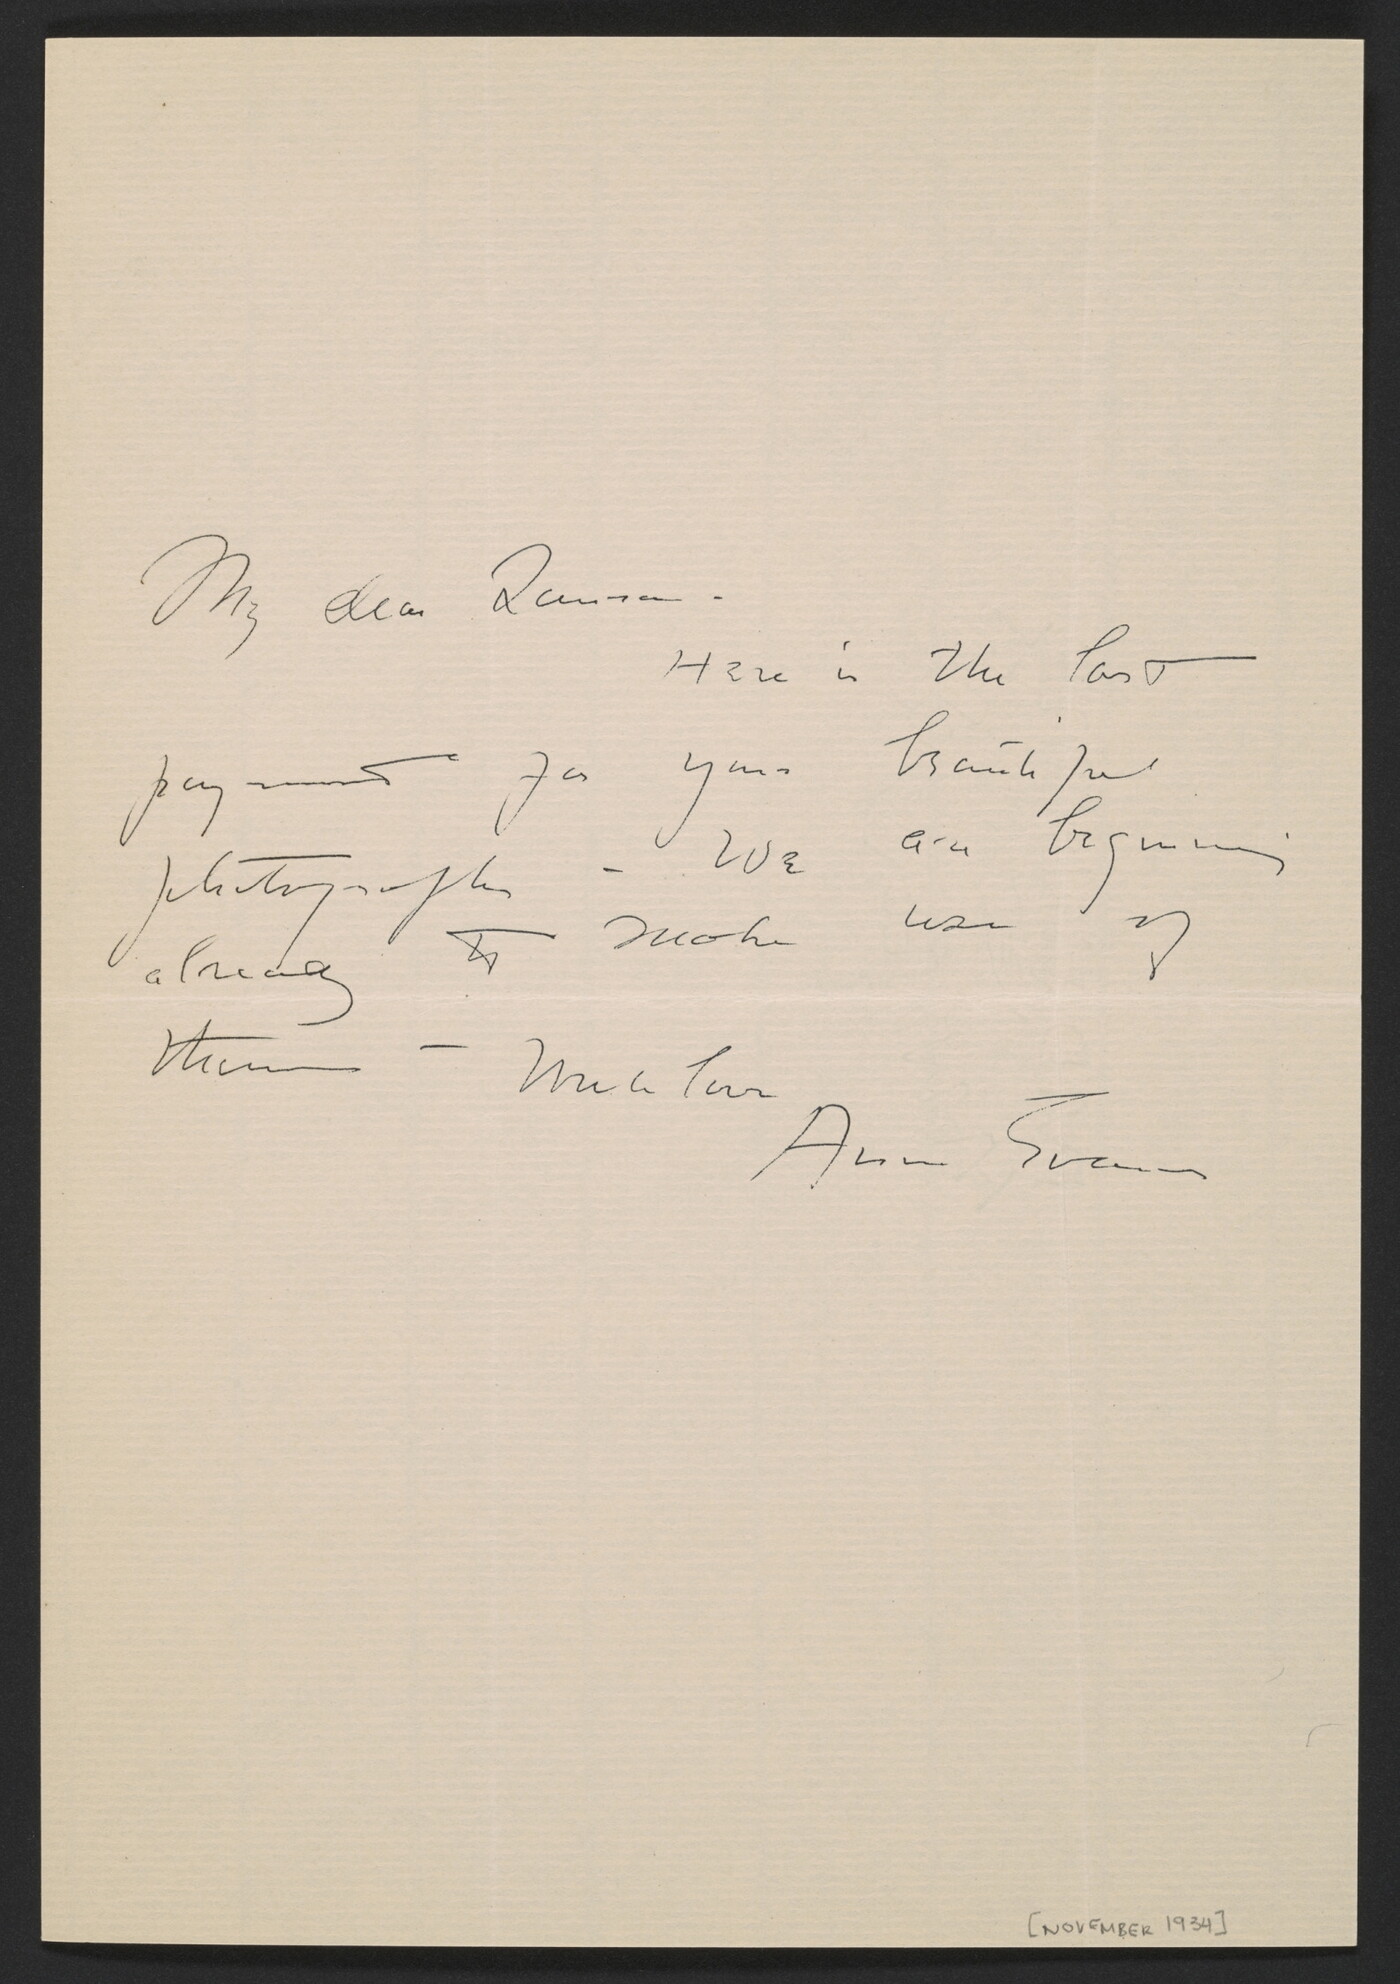 My dear Laura -
Here is the last
payment for your beautiful
photographs - We are beginning
already to make use of
them - Much love
Anne Evans
[NOVEMBER 1934]